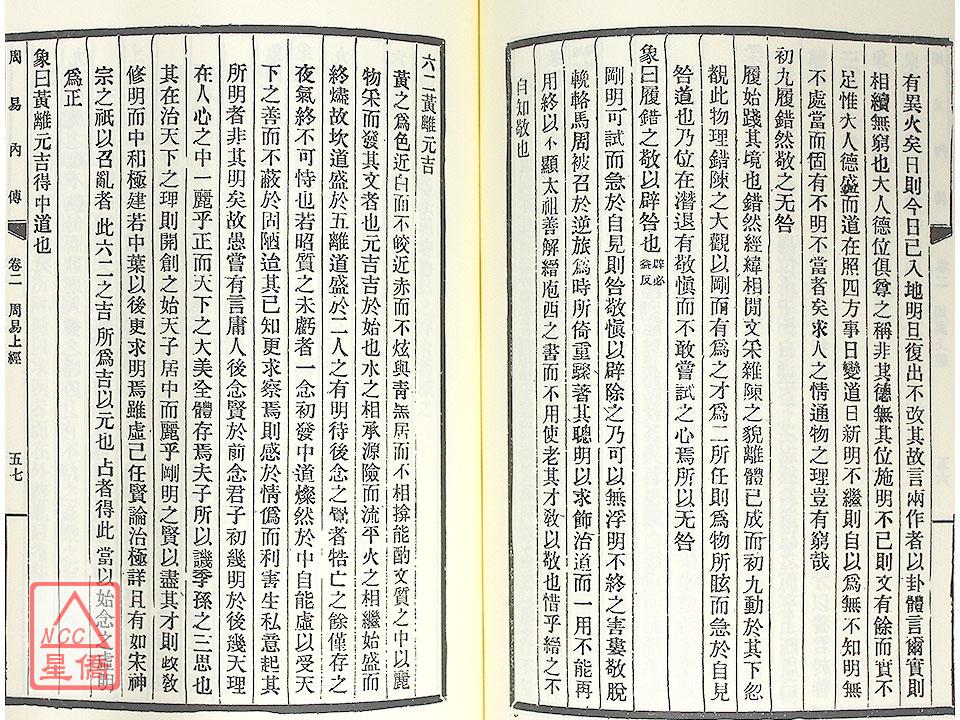 有異火矣日則今日已入地明旦復出不改其故言兩作者以卦體言爾實則
相續無窮也大人德位俱尊之稱非其德無其位施明不已則文有餘而實不
足惟大人德盛而道在照四方事日變道日新明不繼則自以爲無不知明無
不處當而固有不明不當者矣求人之情通物之理豈有窮哉
初九履錯然敬之无咎
履始踐其境也錯然經緯相閒文采雜陳之貌離體已成而初九動於其下忽
觀此物理錯陳之大觀以剛而有爲之才爲二所任則爲物所眩而急於自見
咎道也乃位在潛退有敬愼而不敢嘗試之心焉所以无咎
象曰履錯之敬以辟咎也 辟必益反
剛明可試而急於自見則咎敬愼以辟除之乃可以無浮明不終之害婁敬脫
輓輅馬周被召於逆旅爲時所倚重驟著其聰明以求飾治道而一用不能再
用終以不顯太祖善解縉庖西之書而不用使老其才敎以敬也惜乎縉之不
自知敬也
六二黃離元吉
黃之爲色近白而不皎近赤而不炫與靑無居而不相揜能酌文質之中以麗
物采而發其文者也元吉吉於始也水之相承源險而流平火之相繼始盛而
終燼故坎道盛於五離道盛於二人之有明待後念之覺者牿亡之餘僅存之
夜氣終不可恃也若昭質之未虧者一念初發中道燦然於中自能虛以受天
下之善而不蔽於固陋迨其已知更求察焉則感於情僞而利害生私意起其
所明者非其明矣故愚嘗有言庸人後念賢於前念君子初幾明於後幾天理
在人心之中一麗乎正而天下之大美全體存焉夫子所以譏季孫之三思也
其在治天下之理則開創之始天子居中而麗乎剛明之賢以盡其才則政敎
修明而中和極建若中葉以後更求明焉雖虛己任賢論治極詳且有如宋神
宗之祇以召亂者此六二之吉所爲吉以元也占者得此當以始念之虛明
爲正
象曰黃離元吉得中道也
周易內傳 卷二 周易上經 五七
NCC
星僑